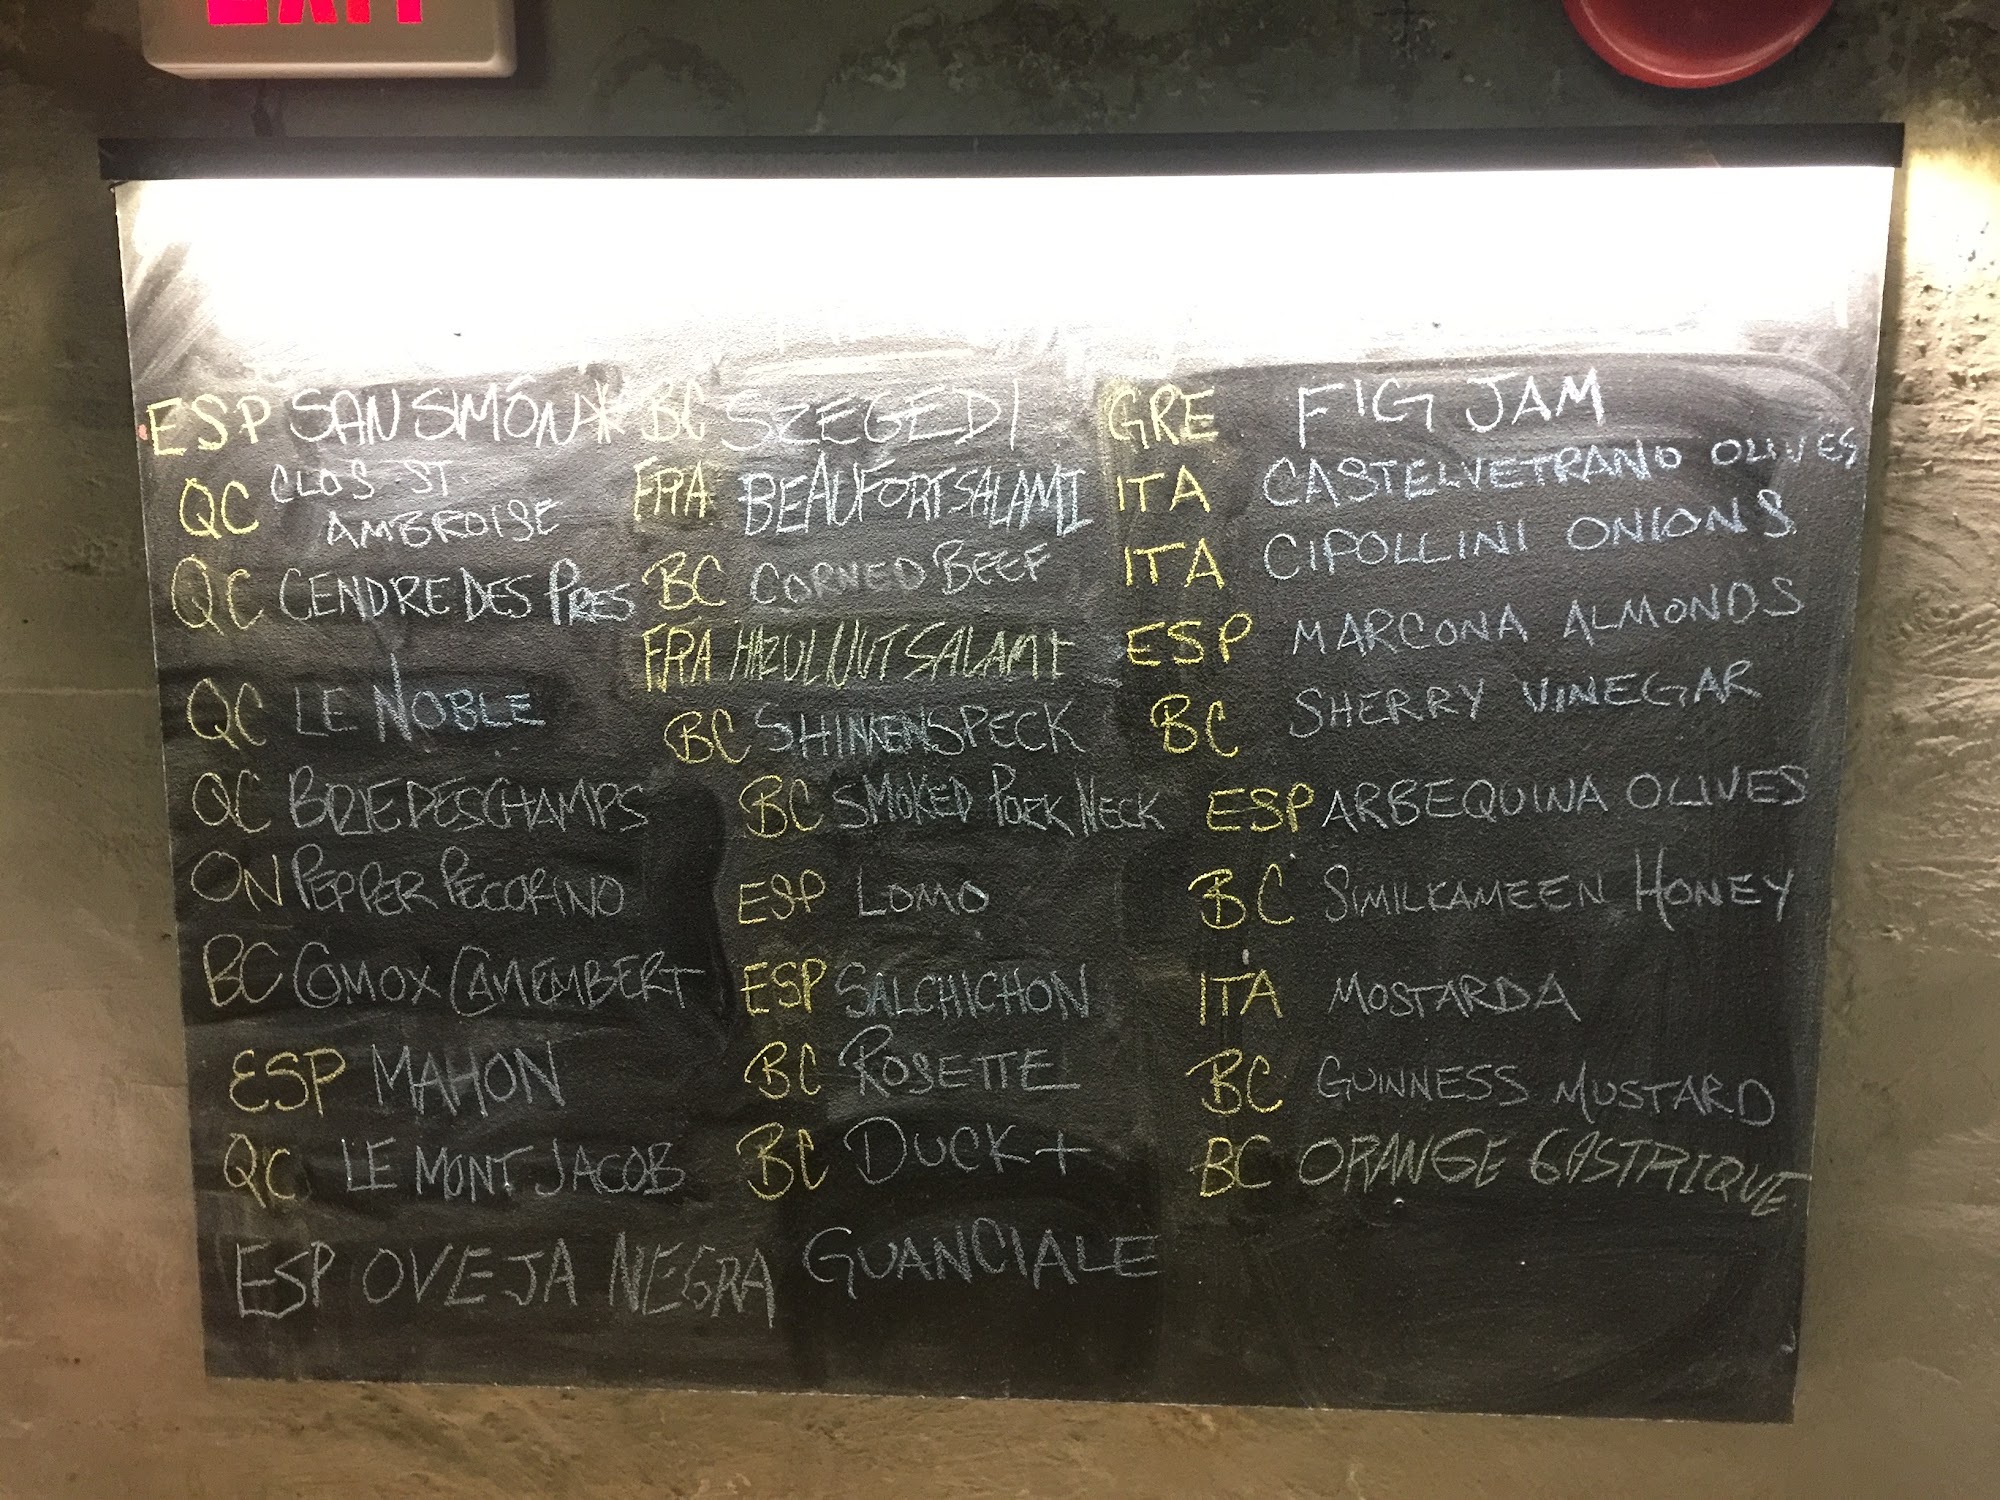 EXIT
ESP SAN SIMÓN*
QC CLOS ST.
AMBROISE
QC CENDRE DES PRES
QC LE NOBLE
QC BRIE DESCHAMPS
ON PEPPER PECORINO
BC COMOX CAMEMBERT
ESP MAHON
QC LE MONT JACOB
ESP OVEJA NEGRA
BC SZEGEDI
FRA BEAUFORT SALAMI
BC CORNED BEEF
FRA HAZULNUT SALAMI
BC SHINKENSPECK
BC SMOKED PORK NECK
ESP LOMO
ESP SALCHICHON
BC ROSETTE
BC DUCK +
GUANCIALE
GRE FIG JAM
ITA CASTELVETRANO OLIVES
ITA CIPOLLINI ONIONS
ESP MARCONA ALMONDS
BC SHERRY VINEGAR
ESP ARBEQUINA OLIVES
BC SIMILKAMEEN HONEY
ITA MOSTARDA
BC GUINNESS MUSTARD
BC ORANGE GASTRIQUE